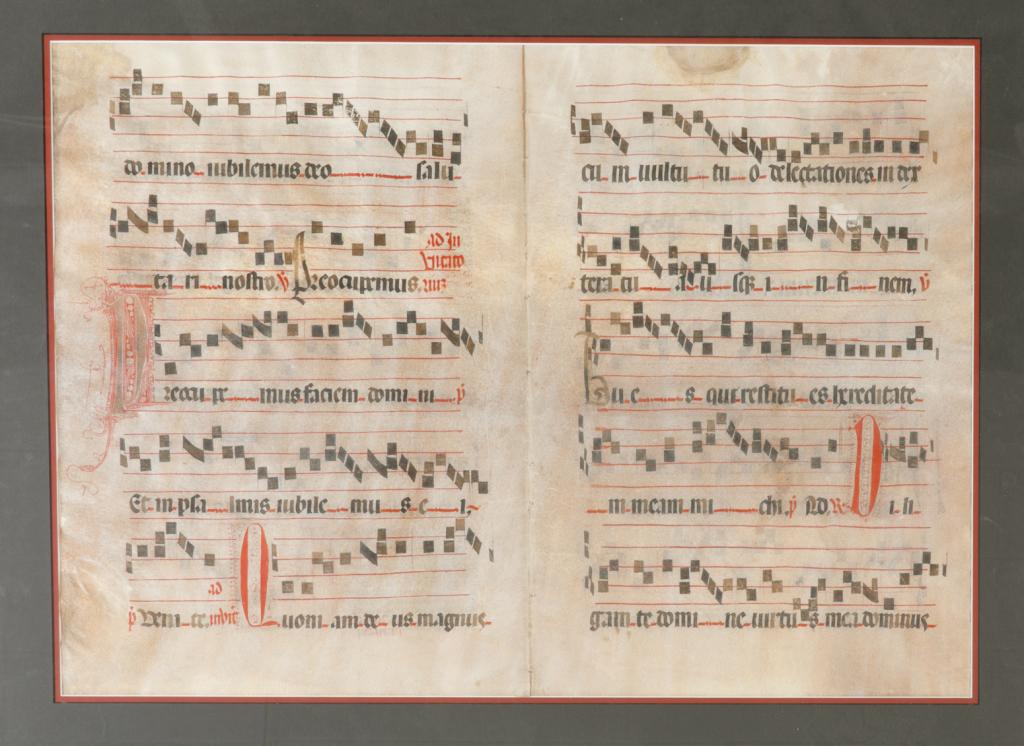 do mino iubilemus deo salu
ta ri nostro. ℣ Preocupemus. ad In
uitato
reocupe mus faciem domi ni p̄
Et in psa lmis iubile mu s e i,
p̄ Veni te. ad inuit Quoni am de us magnus
cu m uultu tu o delectationes in dex
tera tu a u sq i n fi nem, ℣
Tu e s qui restitu es hereditate
m meam mi chi p̄ Ad. R Dili
gam te domi ne uirtu s mea dominus